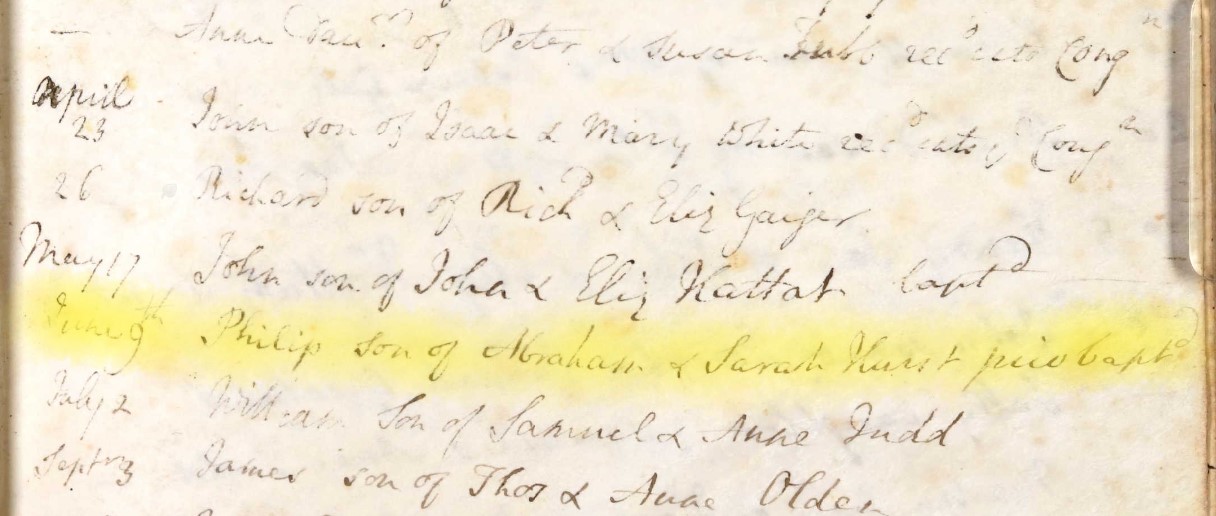 — Anne Daur of Peter & Susan Tubb recd into Congn
April 23 John son of Isaac & Mary White recd into ye Congn
26 Richard son of Richd & Eliz Gaiger
May 17 John son of John & Eliz Kattat baptd
June 9th Philip son of Abraham & Sarah Hurst priv baptd
July 2 William Son of Samuel & Anne Judd
Septr 3 James son of Thos & Anne Olden